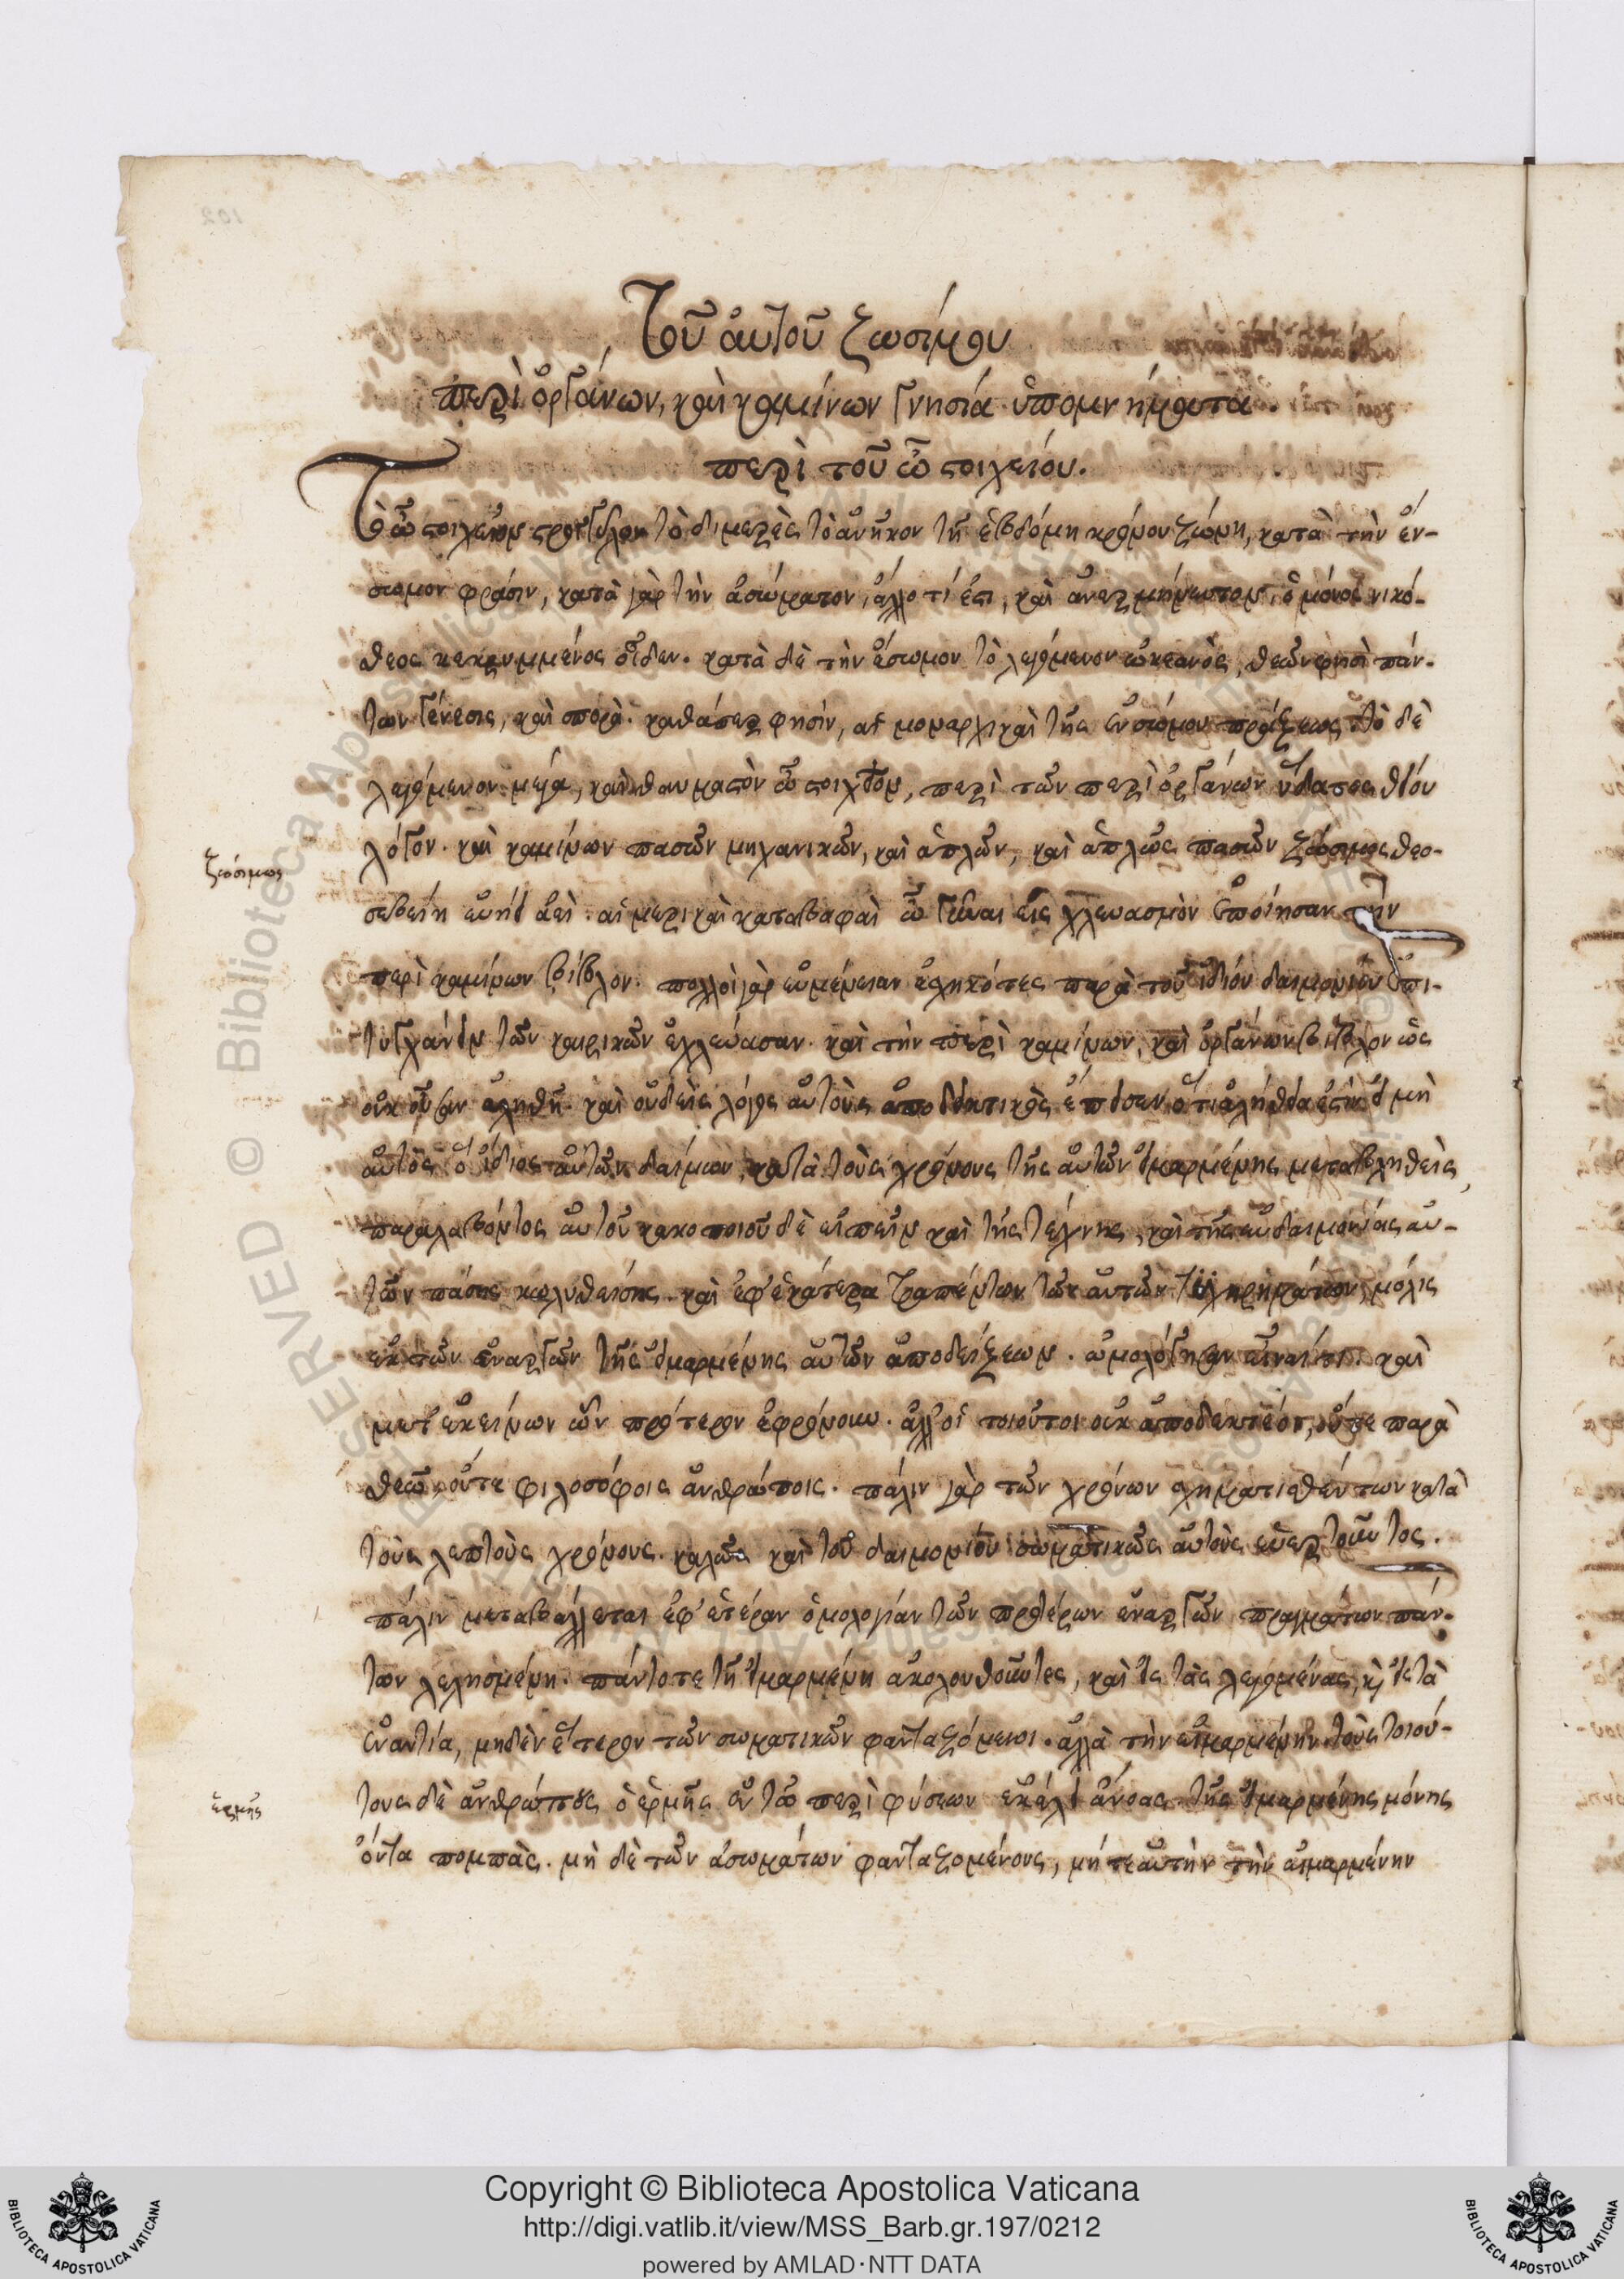 Τοῦ αὐτοῦ ζωσίμου
περὶ ὀργάνων, καὶ καμίνων γνησία ὑπομνήματα.
περὶ τοῦ ω στοιχείου.
Τὸ ω στοιχεῖον στρογγύλον τὸ διμερὲς τὸ ἀνῆκον τῇ ἑβδόμῃ κρόνου ζώνῃ, κατὰ τὴν ἔν-
σωμον φράσιν, κατὰ γὰρ τὴν ἀσώματον, ἄλλο τί ἐστι, καὶ ἀνερμήνευτον, ὁ μόνος νικό-
θεος κεκρυμμένος οἶδεν. κατὰ δὲ τὴν ἔσωμον τὸ λεγόμενον ὠκεανὸς, θεῶν φησὶ πάν-
των γένεσις, καὶ σπορὰ. καθάπερ φησὶν, αἱ μοναρχικαὶ τῆς ἐνσώμου πράξεως τὸ δὲ
λεγόμενον μέγα, καὶ θαυμαστὸν ω στοιχεῖον, περὶ τῶν περὶ ὀργάνων ὕδατος θείου
λόγον. καὶ καμίνων πασῶν μηχανικῶν, καὶ ἁπλῶν, καὶ ἁπλῶς πασῶν ζώσιμος θεο-
ζώσιμος
σεβείῃ εὐηεῖ ἀεὶ. αἱ μερικαὶ καταβαφαὶ ὦ γύναι εἰς χλευασμὸν ἐποίησαν τὴν
περὶ καμίνων βίβλον. πολλοὶ γὰρ εὐμένειαν ἐσχηκότες παρὰ τοῦ ἰδίου δαιμονίου ἐπι-
τυγχάνειν τῶν καιρικῶν ἐχλεύασαν. καὶ τὴν περὶ καμίνων, καὶ ὀργάνων βίβλον ὡς
οὐκ οὖσαν ἀληθῆ. καὶ οὐδεὶς λόγος αὐτοὺς ἀποδεικτικὸς ἔπεισεν ὅτι ἀλήθεια ἐστὶν εἰ μὴ
αὐτὸς ὁ ἴδιος αὐτῶν δαίμων, κατὰ τοὺς χρόνους τῆς αὐτῶν εἱμαρμένης μεταβληθεὶς
παραλαβόντος αὐτοῦ κακοποιοῦ δὲ εἰπεῖν καὶ τῆς τέχνης, καὶ τῆς εὐδαιμονίας αὐ-
τῶν πάσης κωλυθείσης. καὶ ἐφ' ἑκάτερα τραπέντων τῶν αὐτῶν ῥημάτων, μόλις
ἐκ τῶν ἐναργῶν τῆς εἱμαρμένης αὐτῶν ἀποδείξεων. ὡμολόγησαν εἶναί τι. καὶ
μετ' ἐκείνων ὧν πρότερον ἐφρόνουν. ἀλλ' οἱ τοιοῦτοι οὐκ ἀποδεκτέοι, οὔτε παρὰ
θεῷ, οὔτε φιλοσόφοις ἀνθρώποις. πάλιν γὰρ τῶν χρόνων σχηματισθέντων κατὰ
τοὺς λεπτοὺς χρόνους. καλῶς καὶ τοῦ δαιμονίου σωματικῶς αὐτοὺς εὐεργετοῦντος.
πάλιν μεταβάλλεται ἐφ' ἑτέραν ὁμολογίαν τῶν προτέρων ἐναργῶν πραγμάτων πάν-
των λελησμένη. πάντοτε τῇ εἱμαρμένῃ ἀκολουθοῦντες, καὶ εἰς τὰς λεγομένας, κὶ εἰς τὰ
ἐναντία, μηδὲν ἕτερον τῶν σωματικῶν φανταζόμενοι. ἀλλὰ τὴν εἱμαρμένην. τοὺς τοιού-
τους δὲ ἀνθρώπους ὁ ἑρμῆς ἐν τῷ περὶ φύσεων ἐκάλει ἄνοας τῆς εἱμαρμένης μόνης
ἑρμῆς
ὄντα πομπὰς. μὴ δὲ τῶν ἀσωμάτων φανταζομένους, μήτε αὐτὴν τὴν εἱμαρμένην
Copyright © Biblioteca Apostolica Vaticana
http://digi.vatlib.it/view/MSS_Barb.gr.197/0212
powered by AMLAD·NTT DATA
BIBLIOTECA APOSTOLICA VATICANA
BIBLIOTECA APOSTOLICA VATICANA